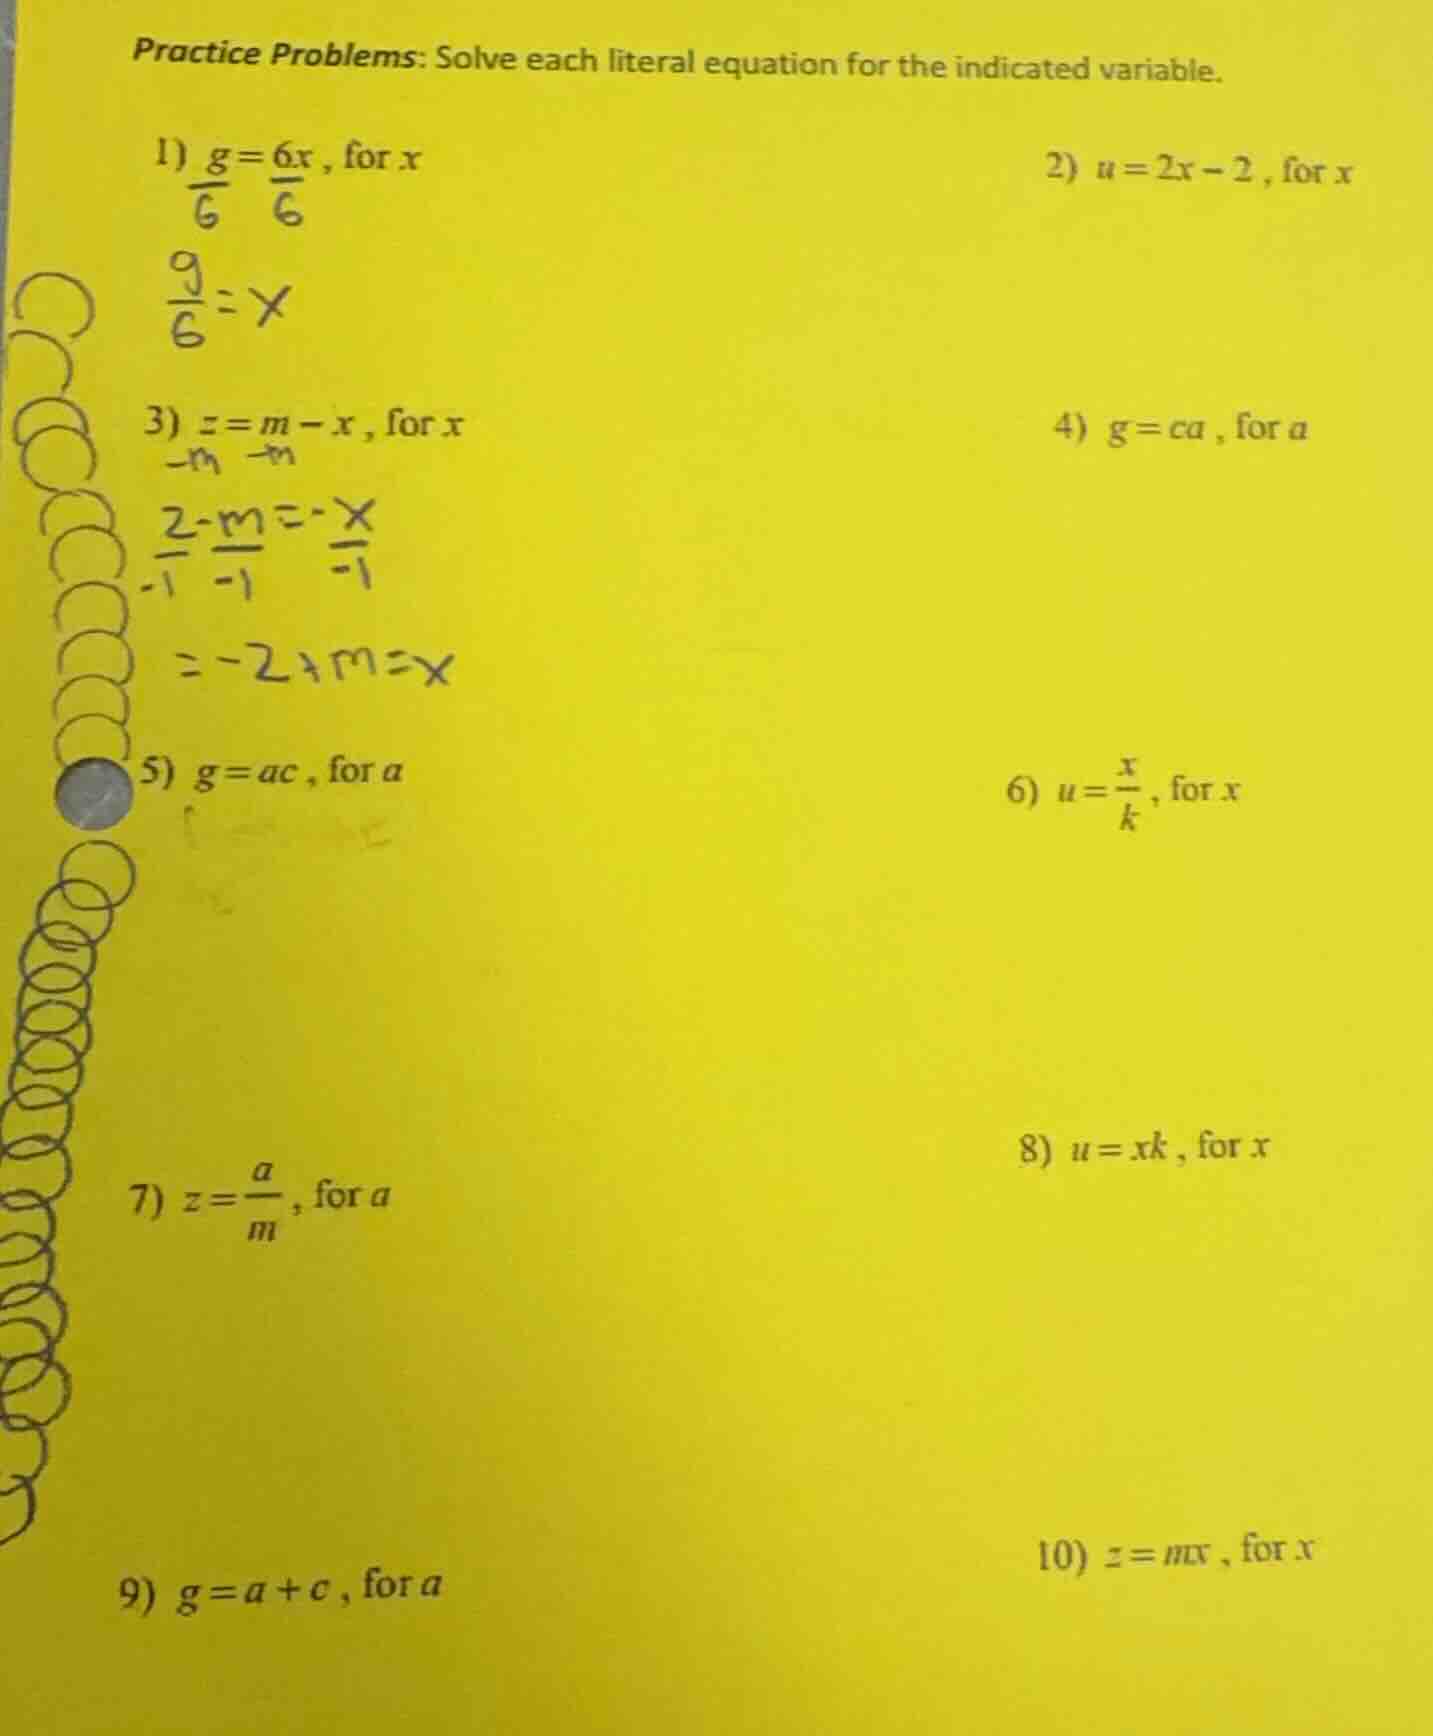 Practice Problems: Solve each literal equation for the indicated variable.
1) g = 6x , for x
6 6
g/6 = x
2) u = 2x – 2 , for x
3) z = m – x , for x
-m -m
2-m=-x
-1 -1 -1
= -2+m=x
4) g = ca , for a
5) g = ac , for a
6) u = x/k , for x
7) z = a/m , for a
8) u = xk , for x
9) g = a + c , for a
10) z = mx , for x